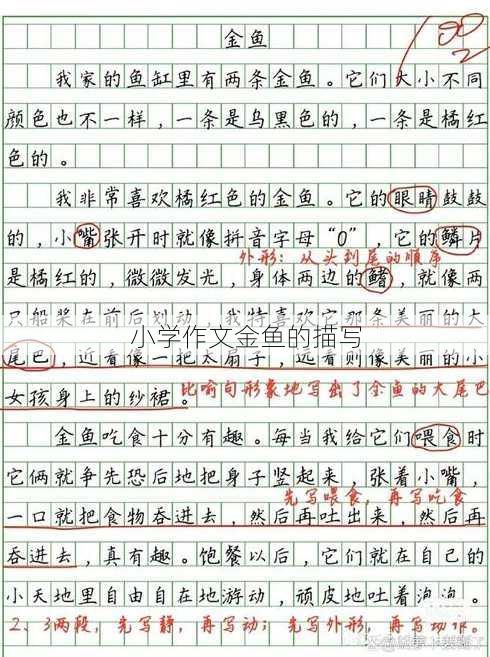 金鱼
我家的鱼缸里有两条金鱼。它们大小不同
颜色也不一样，一条是乌黑色的，一条是橘红
色的。
我非常喜欢橘红色的金鱼。它的眼睛鼓鼓
的，小嘴张开时就像拼音字母“O”，它的鳞片
外形：从头到尾的顺序
是橘红的，微微发光，身体两边的鳍，就像两
只船桨在前后划动。我特喜欢它那条美丽的大
小学作文金鱼的描写
尾巴，近看像一把大扇子，远看则像美丽的小
女孩身上的纱裙。
比喻句形象地写出了金鱼的大尾巴
金鱼吃食十分有趣。每当我给它们喂食时
它俩就争先恐后地把身子竖起来，张着小嘴，
先写喂食，再写吃食
一口就把食物吞进去，然后再吐出来，然后再
吞进去，真有趣。饱餐以后，它们就在自己的
小天地里自由自在地游动，顽皮地吐着泡泡。
2、3两段，先写静，再写动；先写外形，再写动作。